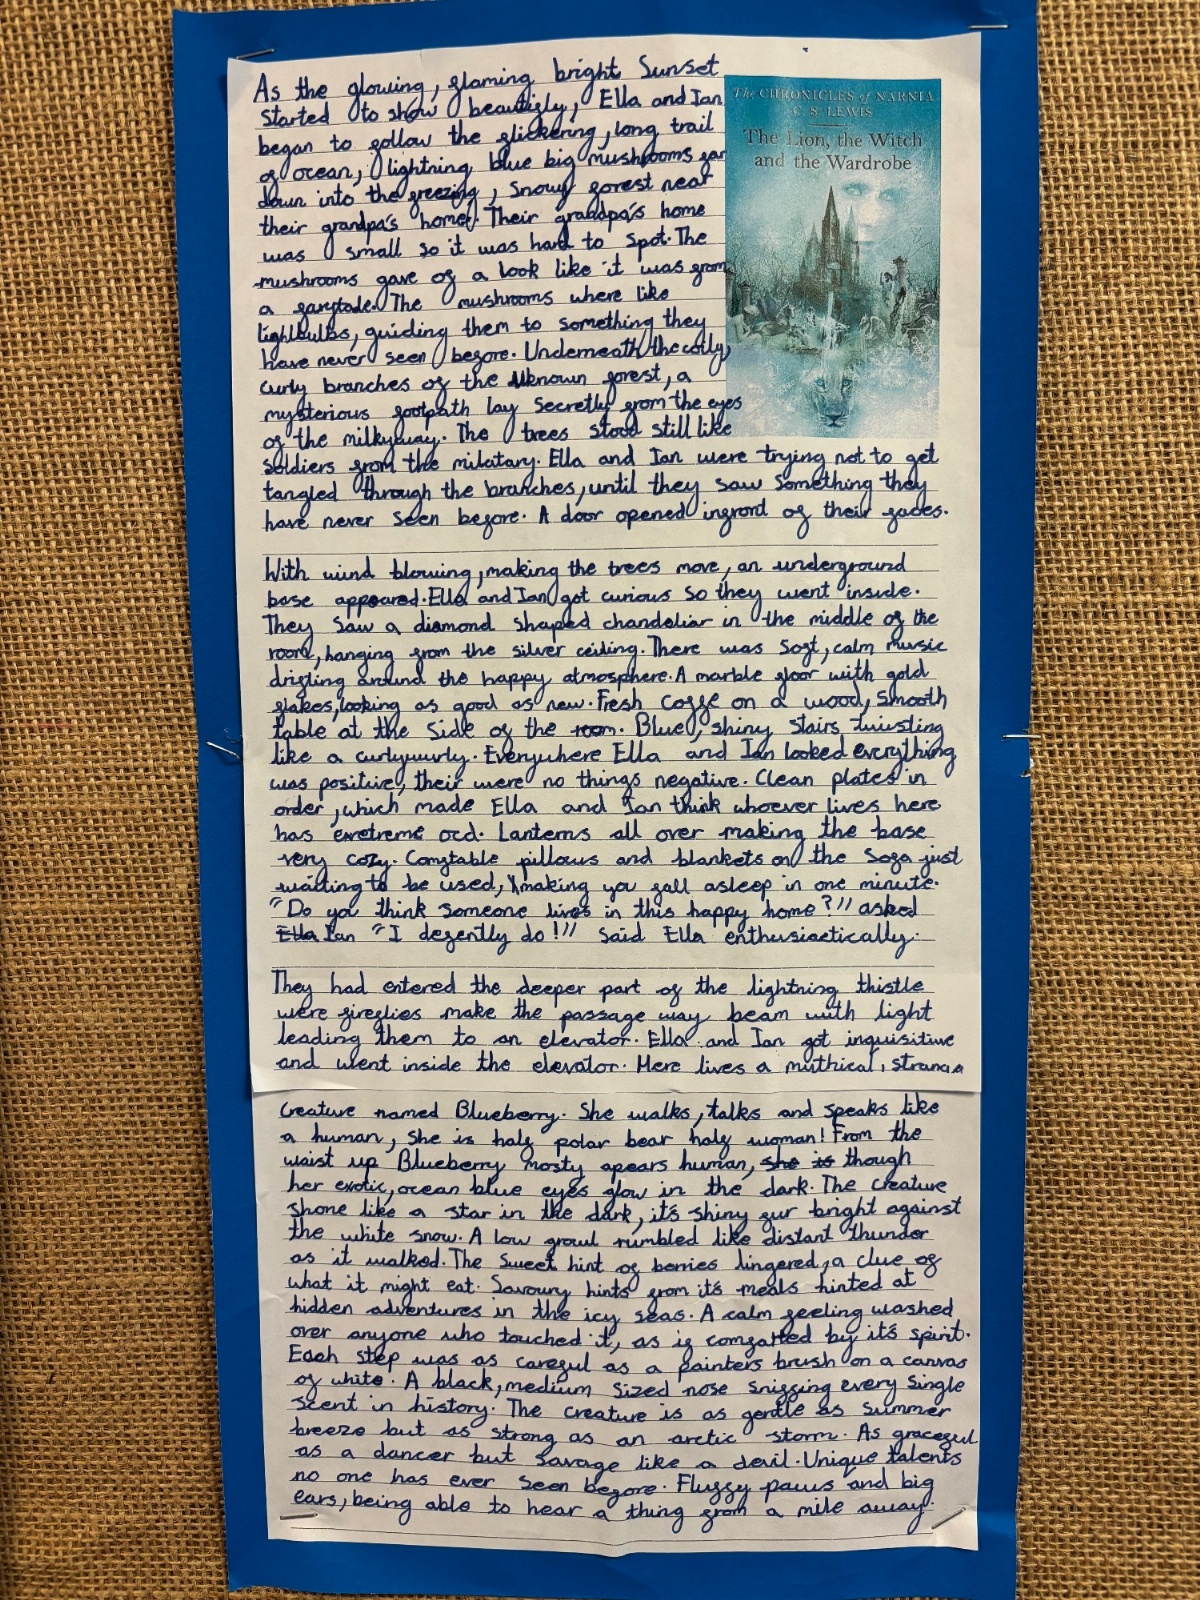 As the glowing, flaming bright Sunset
started to show beautifly, Ella and Ian
began to follow the flickering, long trail
of ocean, lightning, blue big mushrooms far
down into the freezing, snowy forest near
their grandpa's home. Their grandpa's home
was small so it was hard to spot. The
mushrooms gave of a look like it was from
a fairytale. The mushrooms where like
lightbulbs, guiding them to something they
have never seen before. Underneath the coily,
curly branches of the uknown forest, a
mysterious footpath lay secretly from the eyes
of the milkyway. The trees stood still like
soldiers from the milatary. Ella and Ian were trying not to get
tangled through the branches, until they saw something they
have never seen before. A door opened infrond of their faces.
The CHRONICLES of NARNIA
C. S. LEWIS
The Lion, the Witch
and the Wardrobe
With wind blowing, making the trees move, an underground
base appeared. Ella and Ian got curious so they went inside.
They saw a diamond shaped chandeliar in the middle of the
room, hanging from the silver ceiling. There was soft, calm music
drifting around the happy atmosphere. A marble floor with gold
flakes, looking as good as new. Fresh coffe on a wood, smooth
table at the side of the room. Blue, shiny stairs twisting
like a curlywurly. Everywhere Ella and Ian looked everything
was positive, their were no things negative. Clean plates in
order, which made Ella and Ian think whoever lives here
has exretreme ocd. Lanterns all over making the base
very cozy. Comftable pillows and blankets on the sofa just
waiting to be used, making you fall asleep in one minute.
"Do you think someone lives in this happy home?" asked
Ella Ian "I defently do!" said Ella enthusiastically.
They had entered the deeper part of the lightning thistle
were fireflies make the passage way beam with light
leading them to an elevator. Ella and Ian got inquisitive
and went inside the elevator. Here lives a mythical,
creature named Blueberry. She walks, talks and speaks like
a human, she is half polar bear half woman! From the
waist up Blueberry mosty apears human, she is though
her exotic, ocean blue eyes glow in the dark. The creature
shone like a star in the dark, it's shiny fur bright against
the white snow. A low growl rumbled like distant thunder
as it walked. The sweet hint of berries lingered, a clue of
what it might eat. Savoury hints from it's meals hinted at
hidden adventures in the icy seas. A calm feeling washed
over anyone who touched it, as if comfatted by it's spirit.
Each step was as careful as a painters brush on a canvas
of white. A black, medium sized nose sniffing every single
scent in history. The creature is as gentle as summer
breeze but as strong as an arctic storm. As graceful
as a dancer but savage like a devil. Unique talents
no one has ever seen before. Fluffy paws and big
ears, being able to hear a thing from a mile away.